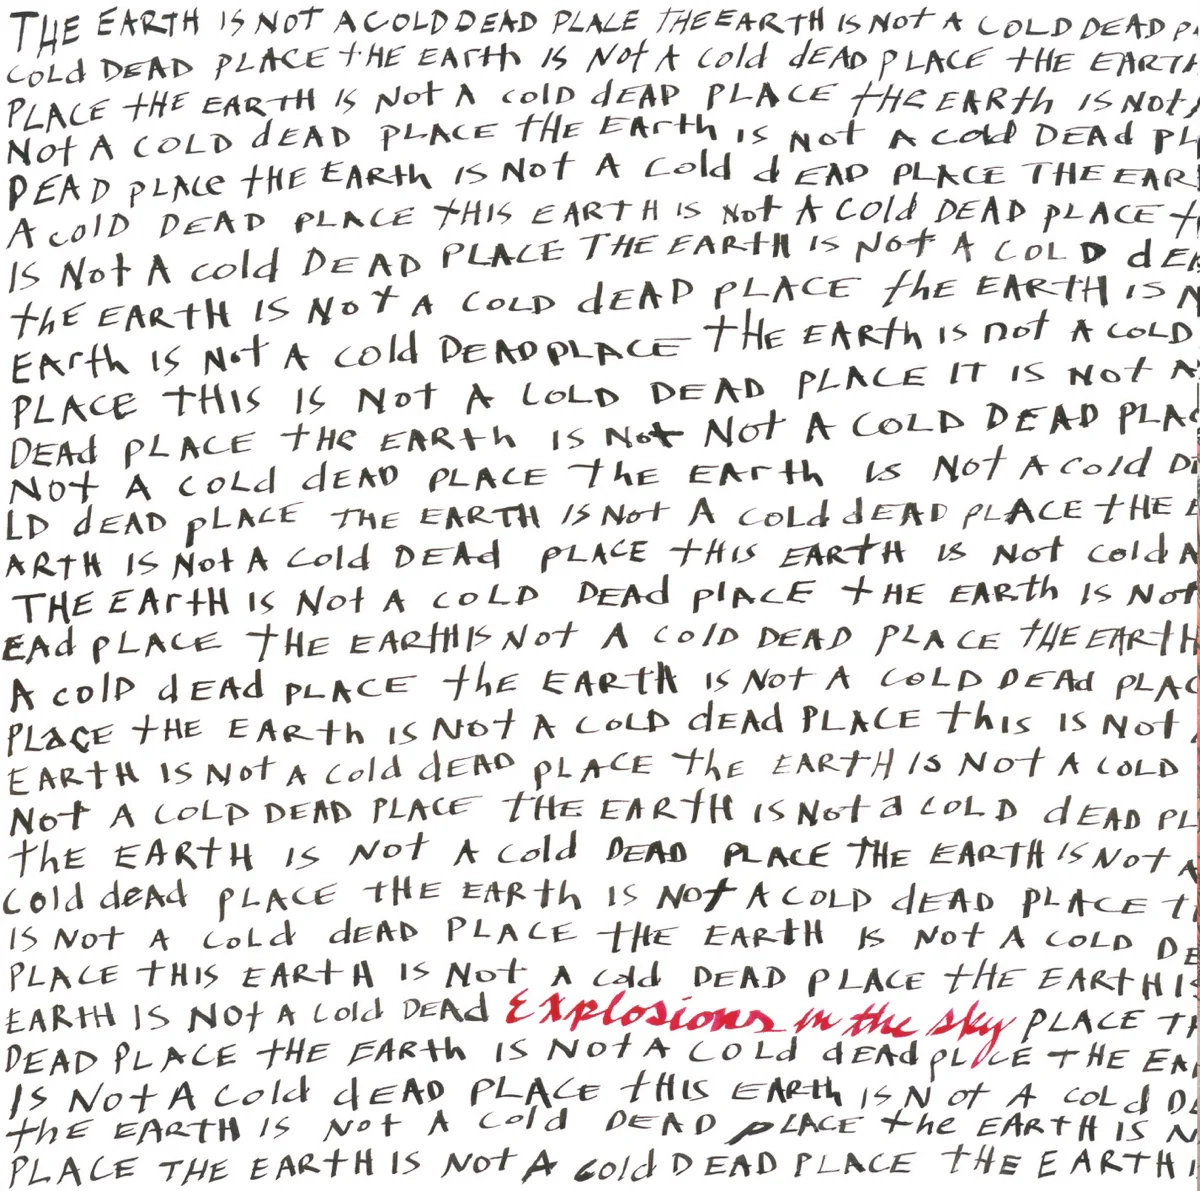 THE EARTH IS NOT A COLD DEAD PLACE THE EARTH IS NOT A COLD DEAD P
COLd DEAD PLACE tHE EArth IS Not A Cold dEAD PLACE tHE EARTH
PLACE tHE EARTH IS Not A cOlD dEAD PLACE tHE EARth IS NOt
Not A COLD dEAD PLACE tHE EArth IS Not A Cold DEAd PL
DEAD pLACe tHE EARth IS Not A Cold dEAD PLACE THE EAR
A colD DEAD PLACE tHIS EARTH IS Not A COld DEAD pLACE t
IS Not A cold DEAD PLACE THE EARtH IS Not A COLD dEA
thE EARTH IS Not A COLD dEAD PLACE thE EARTH IS N
EArth IS Not A cold DEAD PLACE tHE EARth IS not A COLD
PLACE tHIS IS Not A COLD DEAD PLACE IT IS Not A
DEAd pLACE tHe EARth IS Not Not A COLD DEAD PLAC
NOt A COLd dEAD PLACE thE EARth IS Not A Cold D
LD dEAD pLACE THE EARTH IS Not A COLd dEAD pLACE tHE E
ARTH IS Not A Cold DEAd PLACE tHIS EARtH IS Not Cold A
THE EArtH IS Not A COLD DEAd plACE tHE EARth IS Not
EAd pLACE tHE EARtH IS Not A ColD DEAD PLACE tHE EARtH
A colD dEAd PLACE thE EARtH IS Not A COLD DEAd PLAC
PLACE tHE EARth IS Not A COLD dEAd PLACE this IS Not
EARtH IS Not A Cold dEAD pLACE thE EARtH IS Not A COLD
Not A COLD DEAD PLACE tHE EARtH IS Not a COLD dEAD PL
thE EARtH IS Not A Cold DEAD PLACE tHE EARTH IS Not A
COld deAd pLACE tHE EARth IS Not A COLD dEAD PLACE t
IS Not A COLd dEAD PLACE tHE EARtH IS Not A COLD DE
PLACE tHIS EARtH IS Not A cold DEAD PLACE tHE EARtH IS
EARtH IS NOt A Cold DEAd Explosions in the sky PLACE T
DEAD PLACE tHE EARth IS Not A COLd dEAd pLACE THE EA
IS Not A Cold dEAD PLACE tHIS EARth IS Not A COLd D
thE EARTH IS Not A Cold DEAD pLACE the EARTH IS N
PLACE THE EARTH IS Not A Cold DEAD PLACE tHE EARTH